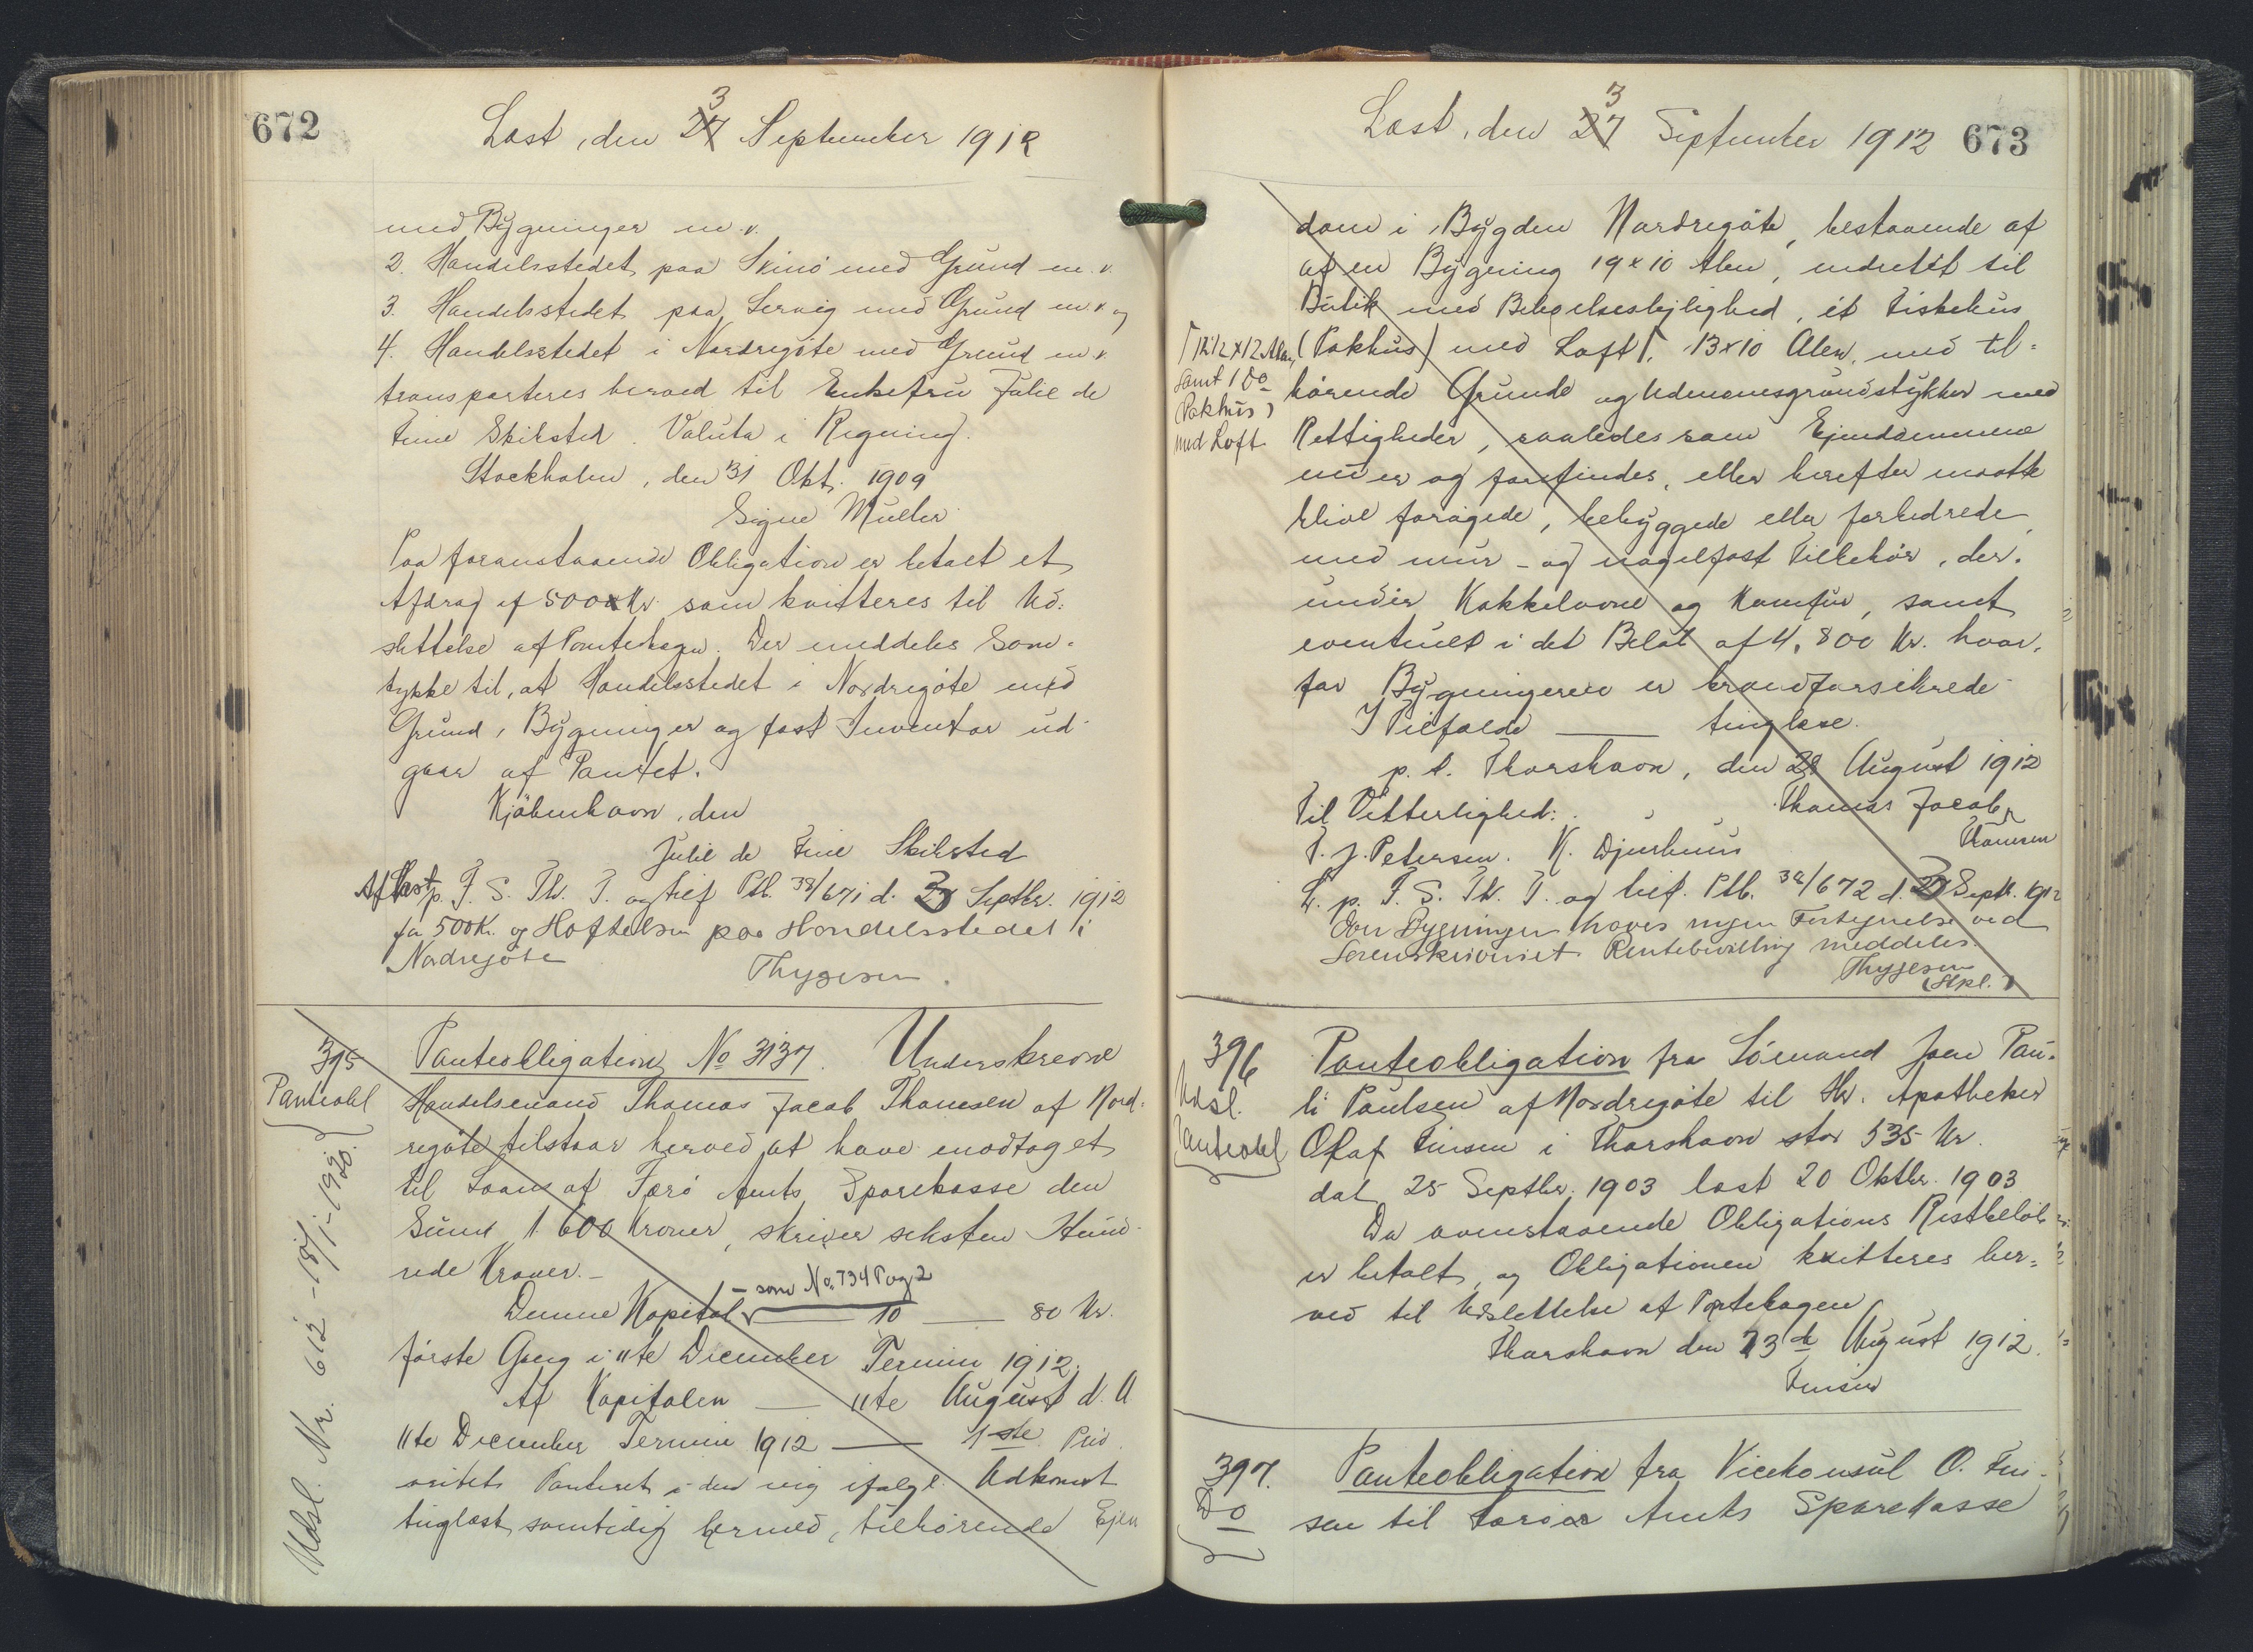 672
Læst, den 27 3 September 1912
med Bygninger m.v.
2. Handelsstedet paa Skinö med Grund m.v.
3. Handelsstedet paa Servig med Grund m.v. og
4. Handelsstedet i Nordregöte med Grund m.v.
transporteres herved til Enkefru Julie de
Fine Skibsted. Valuta i Regning.
Stockholm, den 31 Okt. 1909
Signe Müller
Paa foranstaaende Obligation er betalt et
Afdrag af 500 Kr. som kvitteres til Ud-
slettelse af Pantebogen. Der meddeles Sam-
tykke til, at Handelsstedet i Nordregöte med
Grund, Bygninger og fast Inventar ud-
gaar af Pantet.
Kjöbenhavn, den
Julie de Fine Skibsted
Aflæst p. F. S. Th. T. og tilf Ptb. 38/671 d. 3 Septbr. 1912
for 500 K. og Hæftelsen paa Handelsstedet i
Nordregöte
Thygesen.
395
Panteobl
Udsl. Nr. 612 - 15/1-1920.
Panteobligation No 3137. Underskrevne
Handelsmand Thomas Jacob Thomsen af Nord-
regöte tilstaar herved at have modtaget
til Laans af Færö Amts Sparekasse den
Sum 1600 Kroner, skriver seksten Hund-
rede Kroner.-
- som No. 734 Pag 2
Denne Kapital — 10 — 80 Kr.
förste Gang i 11te December Termin 1912.
Af Kapitalen — 11te August d. A
11te December Termin 1912 — 1ste Pri
oritets Panteret i den mig ifölge Adkomst
tinglæst samtidig hermed, tilhörende Ejen
Læst, den 27 3 September 1912 673
dom i Bygden Nordregöte, bestaaende af
af en Bygning 19 x 10 Alen, indrettet til
Butik med Beboelseslejlighed, et Fiskehus
(Pakhus) med Loft, 13 x 10 Alen, med til-
12 1/2 x 12 Alen,
samt 1 Do
Pakhus)
med Loft
hörende Grunde og Udenomsgrundstykker med
Rettigheder, saaledes som Ejendommene
nu er og forefindes, eller herefter maatte
blive forögede, bebyggede eller forbedrede,
med mur- og nagelfast Tilbehör, der-
under Kakkelovne og Komfur, samt
eventuelt i det Belöb af 4,800 Kr. hvor-
for Bygningerne er brandforsikrede
I Tilfælde — tinglæse.
p. t. Thorshavn, den 28 August 1912
Til Vitterlighed: Thomas Jacob
Thomsen
P. J. Petersen. K. Djurhuus
L. p. F. S. Th. T. og tilf. Ptb. 38/672 d. 3 Septb. 1912
Over Bygningen haves ingen Fortegnelse ved
Sorenskriveriet. Rentebevilling meddeles.
Thygesen
(Spl.)
396
Udsl.
Panteobl
Panteobligation fra Sömand Joen Pau-
li Paulsen af Nordregöte til Hr. Apotheker
Olaf Finsen i Thorshavn stor 535 Kr.
dat 25 Septbr. 1903 læst 20 Oktbr. 1903
Da ovenstaaende Obligations Restbelöb
er betalt, og Obligationen kvitteres her-
ved til Udslettelse af Pantebogen
Thorshavn den 23de August 1912.
Finsen
397.
Do
Panteobligation fra Vicekonsul O. Fin-
sen til Færöer Amts Sparekasse